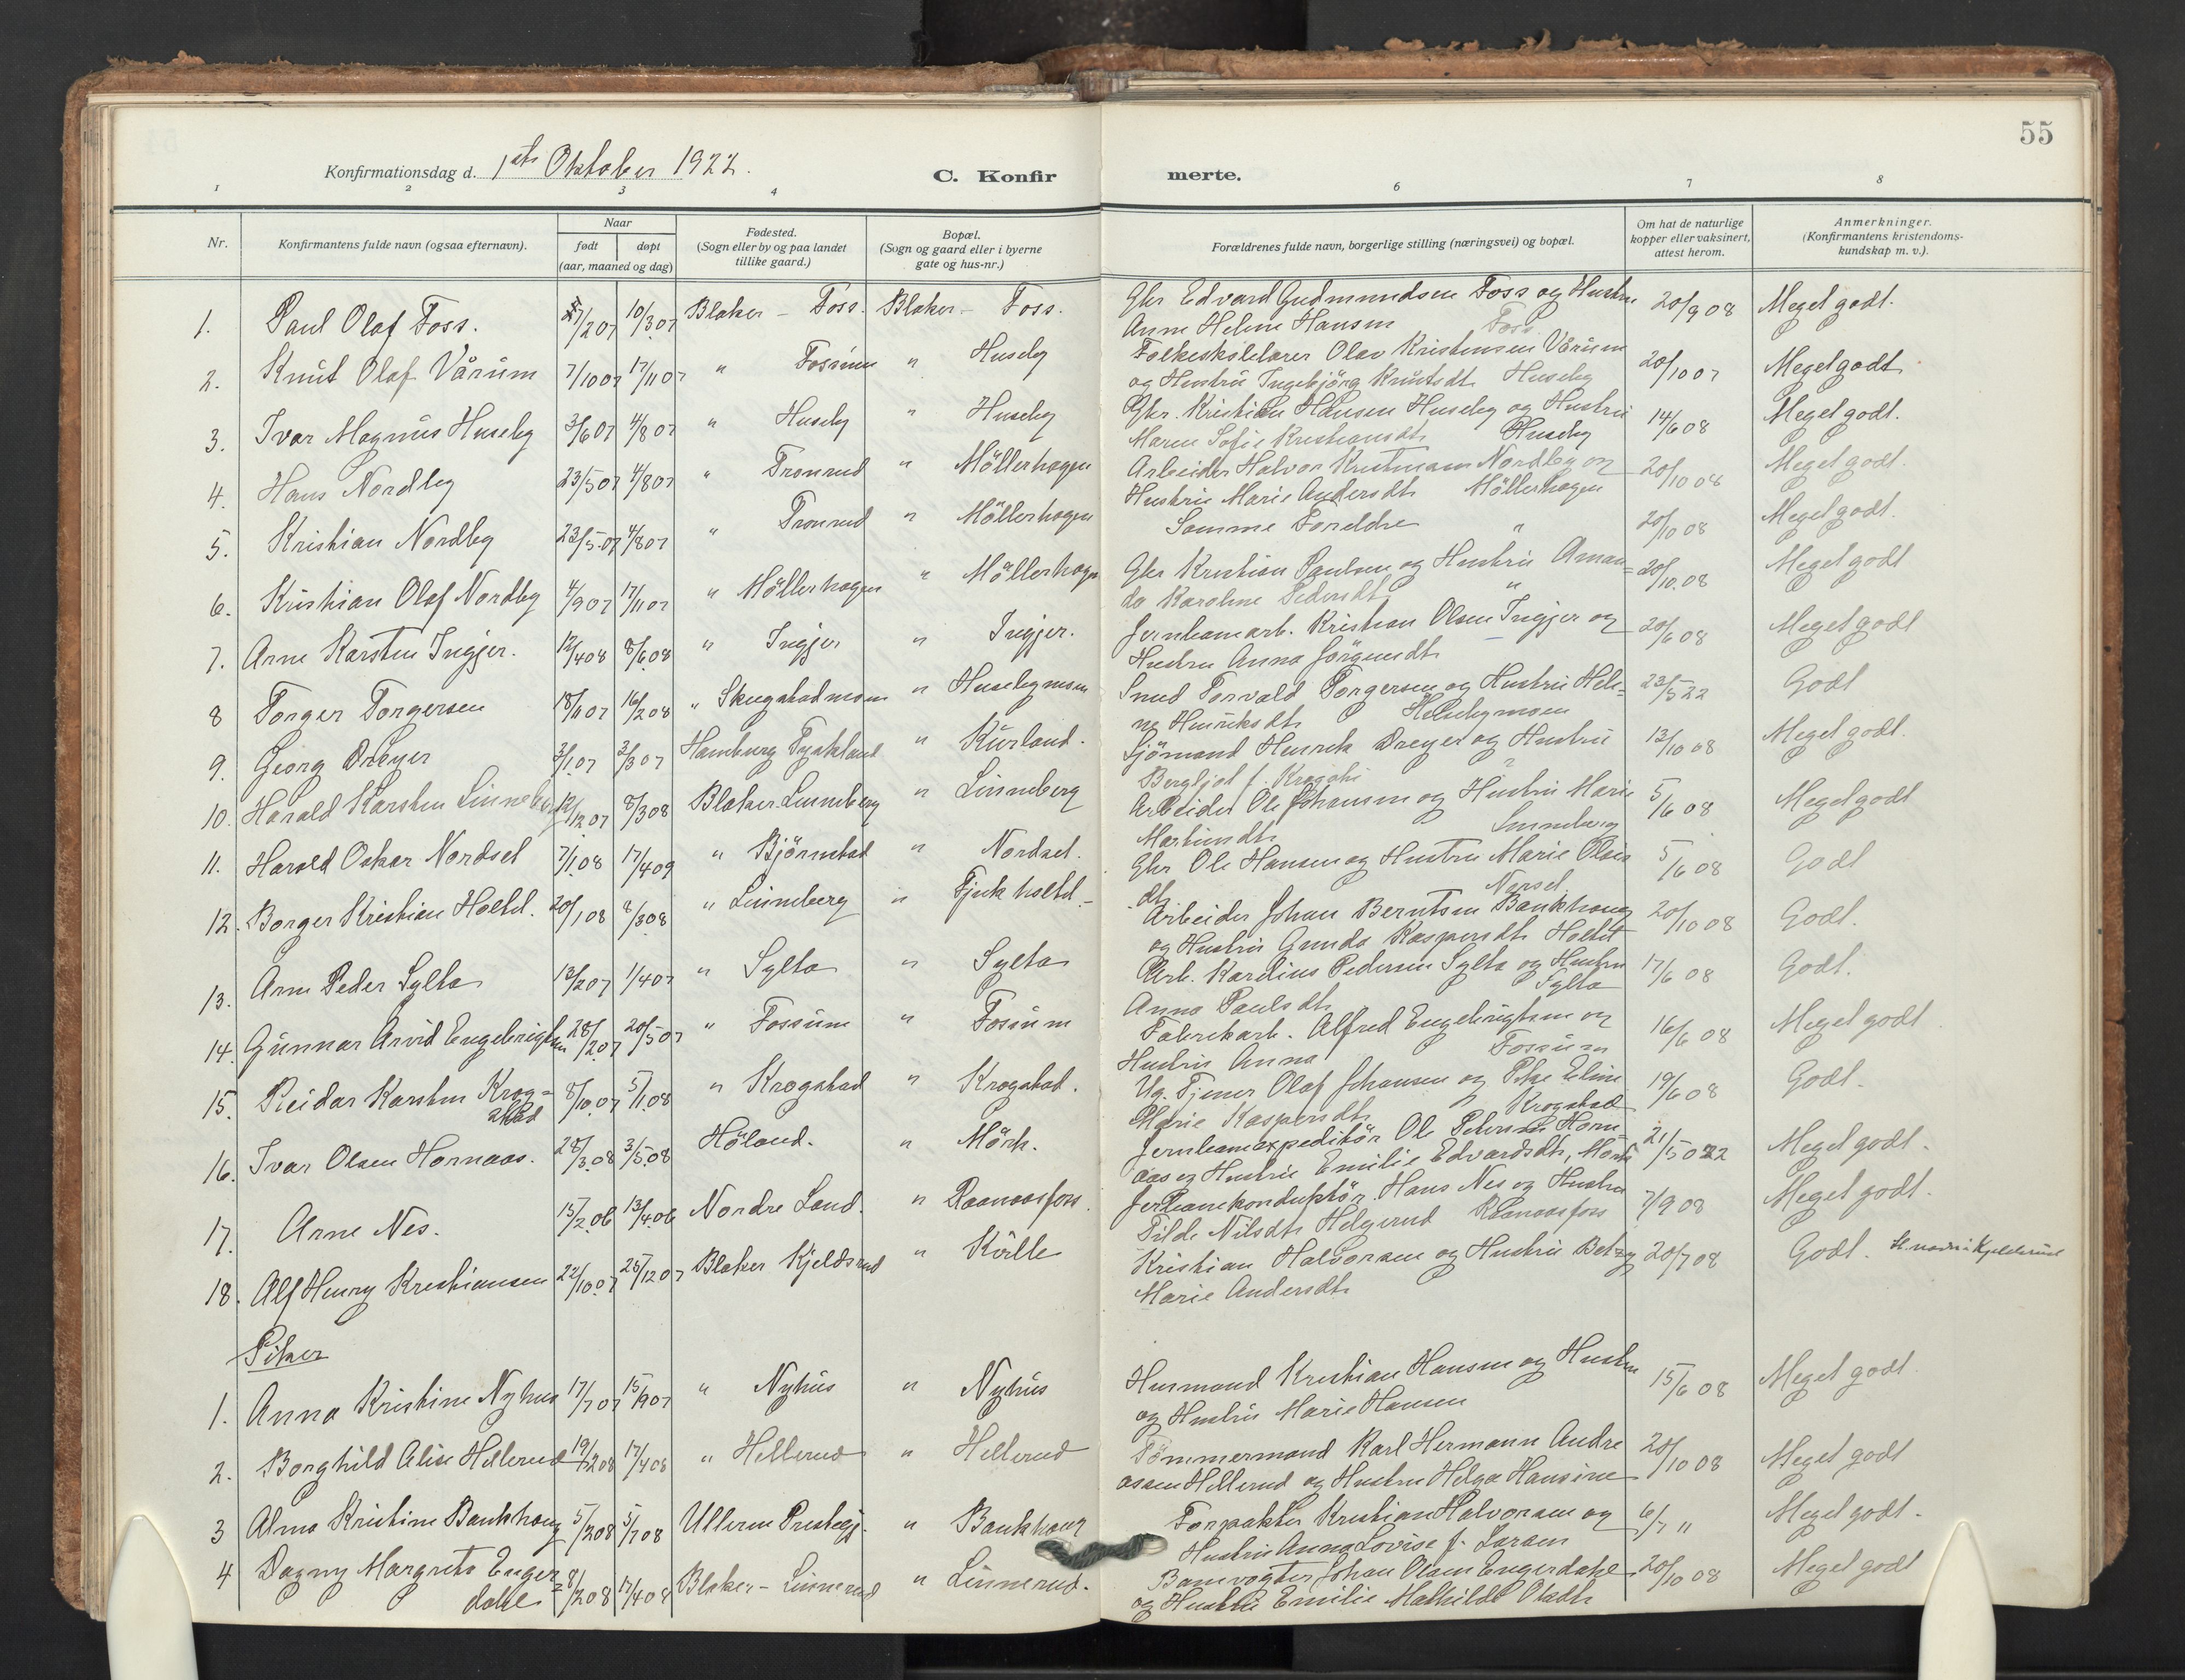 55
Konfirmationsdag d. 1ste Oktober 1922.
C. Konfirmerte.
1 2 3 4 6 7 8
Nr.
Konfirmantens fulde navn (ogsaa efternavn).
Naar
født
døpt
(aar, maaned og dag)
Fødested.
(Sogn eller by og paa landet
tillike gaard.)
Bopæl.
(Sogn og gaard eller i byerne
gate og hus-nr.)
Forældrenes fulde navn, borgerlige stilling (næringsvei) og bopæl.
Om hat de naturlige
kopper eller vaksinert,
attest herom.
Anmerkninger.
(Konfirmantens kristendoms-
kundskap m. v.).
1. Paul Olaf Foss. 10/3 07 Blaker - Foss. Blaker - Foss. Gbr Edvard Gudmundsen Foss og Hustru 20/9 08 Meget godt.
Anne Helene Hansen Foss
2. Knut Olaf Vårum 7/10 07 17/11 07 " Fossum " Huseby Folkeskolelærer Olav Kristensen Vårum 20/10 07 Meget godt.
og Hustru Ingebjörg Knutsdt. Huseby
3. Ivar Magnus Huseby 3/6 07 4/8 07 " Huseby " Huseby Gbr. Kristian Hansen Huseby og Hustru 14/6 08 Meget godt.
Maren Sofie Kristiansdt. Huseby
4. Hans Nordby 23/5 07 4/8 07 " Tronrud " Möllerhagen Arbeider Halvor Kristiansen Nordby og 20/10 08 Meget godt.
Hustru Marie Andersdt. Möllerhagen
5. Kristian Nordby 23/5.07 4/8 07 " Tronrud " Möllerhagen Samme Foreldre " 20/10 08 Meget godt.
6. Kristian Olaf Nordby 4/9 07 17/11 07 " Möllerhagen " Möllerhagen Gbr Kristian Paulsen og Hustru Aman= 20/10.08 Meget godt
da Karoline Pedersdt. "
7. Arne Karsten Ingjer. 12/4 08 8/6 08 " Ingjer " Ingjer. Jernbanearb. Kristian Olsen Ingjer og 20/6 08 Meget godt
Hustru Anna Jörgensdt.
8 Torger Torgersen 18/11 07 16/2 08 " Skugstadmoen " Husebymoen Smed Torvald Torgersen og Hustru Hele= 23/5 22 Godt
ne Henriksdt. Husebymoen
9. Georg Dreyer 3/1.07 3/3 07 Hamburg Tyskland " Kurland. Sjömand Henrik Dreyer og Hustru 13/10 08 Meget godt.
Bergljot f. ?
10. Harald Karsten Linneberg 12/12 07 8/3 08 Blaker Linneberg " Linneberg Arbeider Ole Johansen og Hustru Marie 5/6 08 Meget godt
Martinsdt. Linneberg
11. Harald Oskar Nordset 7/1.08 17/4 09 " Björnstad " Nordset. Gbr Ole Hansen og Hustru Marie Olsis 5/6 08 Godt
dt. Norset
12. Borger Kristian Holtet. 20/1 08 8/3 08 " Linneberg " Fjukholtet.- Arbeider Johan Berntsen Baukhaug 20/10 08 Godt.
og Hustru Gunda Kaspersdt. Holtet
13. Arne Peder Sylta 13/2 07 1/4 07 " Sylta " Sylta Arb. Karelius Pedersen Sylta og Hustru 17/6 08 Godt.
Anna Paulsdt. Sylta
14. Gunnar Arvid Engebrigtsen 28/2 07 20/5 07 " Fossum " Fossum Fabrikarb. Alfred Engebrigtsen og 16/6 08 Meget godt
Hustru Anna Fossum
15. Reidar Karsten Krog= 8/10.07 5/1.08 " Krogstad " Krogstad. Ug. Tjener Olaf Johansen og Pike Eline 19/6 08 Godt.
stad Marie Kaspersdt. Krogstad
16. Ivar Olsen Hornaas. 28/3.08 3/5.08 Höland. " Mörk. Jernbaneexpeditör Ole Petersen Horn= 21/5 22 Meget godt.
aas og Hustru Emilie Edvardsdt., Mörk
17. Arne Nes. 15/2.06 13/4.06 Nordre Land. " Raanaasfoss. Jerbanekonduktör. Hans Nes og Hustru 7/9 08 Meget godt.
Tilde Nilsdt. Helgerud Raanaasfoss
18. Alf Henry Kristiansen 22/10.07 25/12 07 Blaker Kjeldsrud " Kölle Kristian Halvorsen og Hustru Betzy 20/7 08 Godt.
Marie Andersdt.
Piker
1. Anna Kristine Nyhus 17/7 07 15/9 07 " Nyhus " Nyhus Husmand Kristian Hansen og Hustru 15/6 08 Meget godt.
og Hustru Marie Hansen
2. Borghild Alise Hellerud 19/1 08 17/4 08 " Hellerud " Hellerud Tömmermand Karl Hermann Andre 20/10 08 Meget godt
assen Hellerud og Hustru Helga Hansine
3 Alma Kristine Baukhaug 5/2 08 5/7 08 Ullern Prestegj. " Baukhaug Forpakter Kristian Halvorsen og 6/7 " Meget godt.
Hustru Anna Lovise f. Larsen
4 Dagny Margrete Enger= 8/2 08 17/4 08 Blaker - Linnerud " Linnerud. Banevogter Johan Olsen Engerdahl 20/10 08 Meget godt
dahl og Hustru Emilie Mathilde Olsdt.